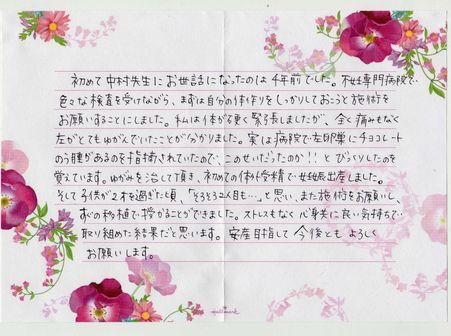 初めて中村先生にお世話になったのは4年前でした。不妊専門病院で
色々な検査を受けながら、まずは自分の体作りをしっかりしておこうと施術を
お願いすることにしました。私は体が硬く緊張しましたが、全く痛みもなく
左がとてもゆがんでいたことが分かりました。実は病院で左卵巣にチョコレート
のう腫があるのを指摘されていたので、このせいだったのか!!とびっくりしたのを
覚えています。ゆがみを治して頂き、初めての体外受精で妊娠出産しました。
そして子供が2才を過ぎた頃、「そろそろ2人目も…」と思い、また施術をお願いし、
すぐの移植で授かることができました。ストレスもなく心身共に良い気持ちで
取り組めた結果だと思います。安産目指して今後ともよろしく
お願いします。
Hallmark